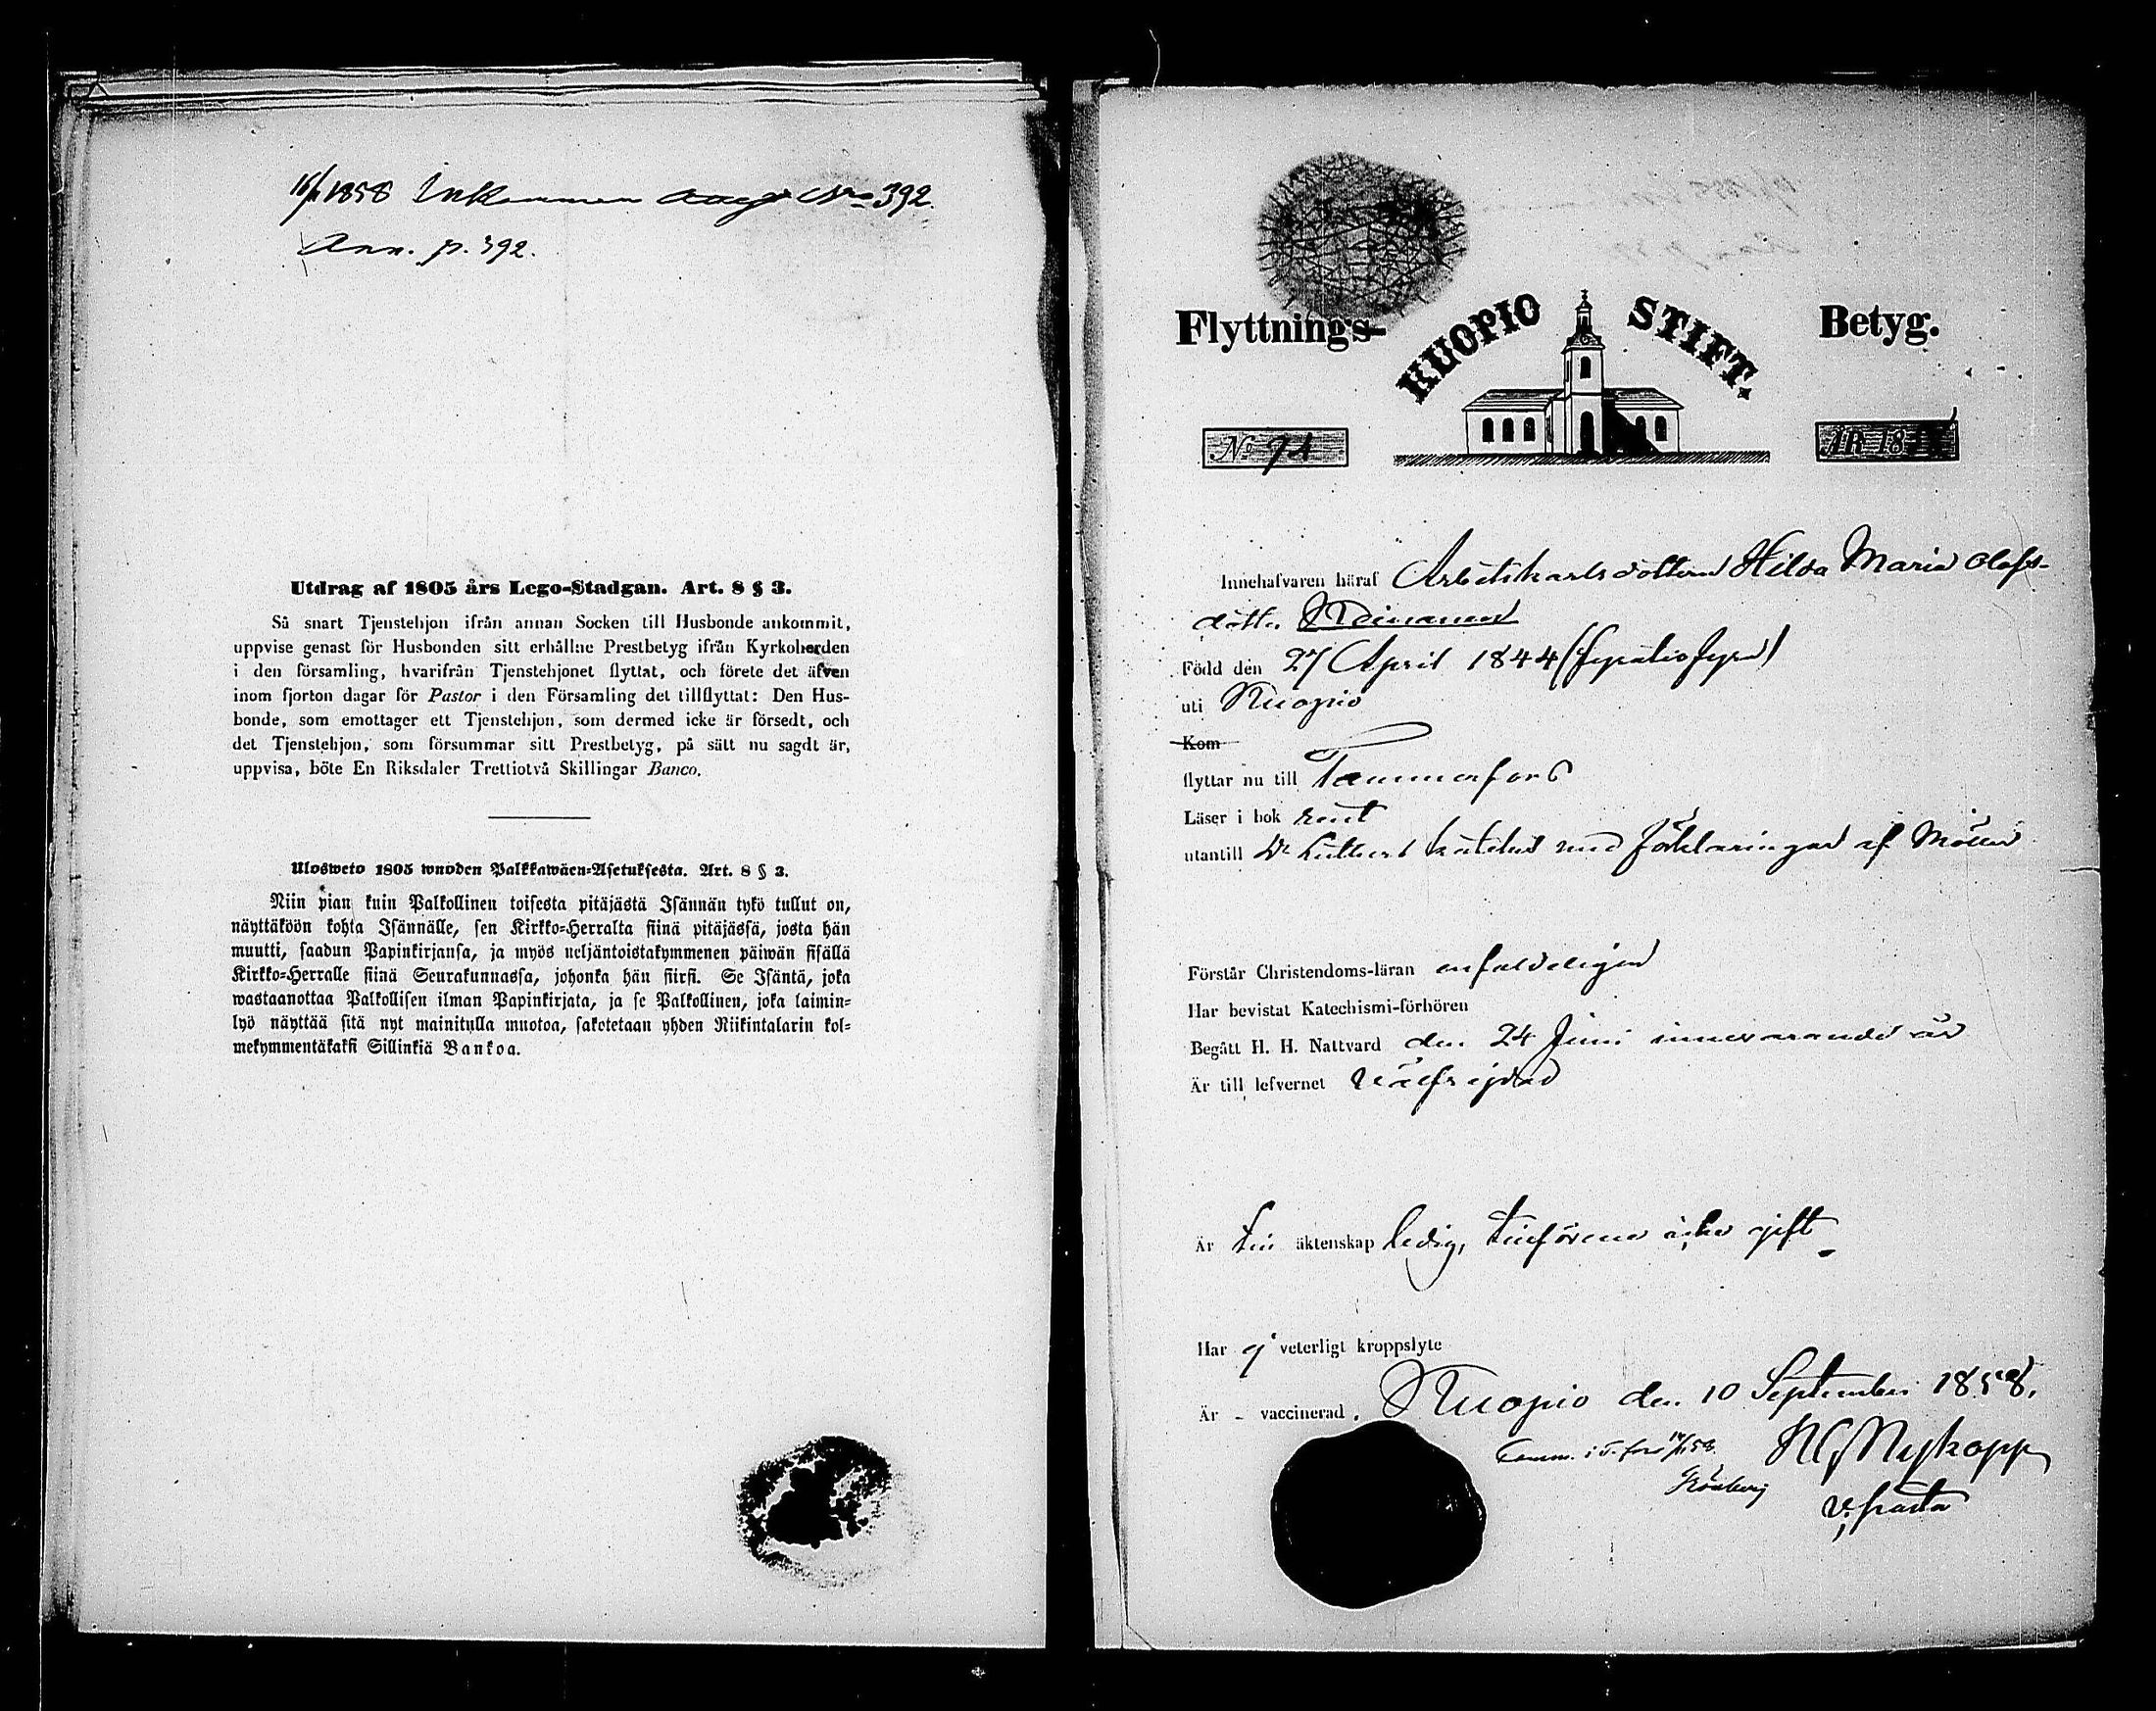 1858 Inkommen Nro 392.
Ann. p. 392.
Utdrag af 1805 års Lego-Stadgan. Art. 8 § 3.
Så snart Tjenstehjon ifrån annan Socken till Husbonde ankommit,
uppvise genast för Husbonden sitt erhållne Prestbetyg ifrån Kyrkoherden
i den församling, hvarifrån Tjenstehjonet flyttat, och förete det äfven
inom fjorton dagar för Pastor i den Församling det tillflyttat: Den Hus-
bonde, som emottager ett Tjenstehjon, som dermed icke är försedt, och
det Tjenstehjon, som försummar sitt Prestbetyg, på sätt nu sagdt är,
uppvisa, böte En Riksdaler Trettiotvå Skillingar Banco.
Ulosweto 1805 wuoden Palkkawäen-Asetuksesta. Art. 8 § 3.
Niin pian kuin Palkollinen toisesta pitäjästä Isännän tykö tullut on,
näyttäköön kohta Isännälle, sen Kirkko-Herralta siinä pitäjässä, josta hän
muutti, saadun Papinkirjansa, ja myös neljäntoistakymmenen päiwän sisällä
Kirkko-Herralle siinä Seurakunnassa, johonka hän siirsi. Se Isäntä, joka
wastaanottaa Palkollisen ilman Papinkirjata, ja se Palkollinen, joka laimin-
lyö näyttää sitä nyt mainitulla muotoa, sakotetaan yhden Riikintalarin kol-
mekymmentäkaksi Sillinkiä Bankoa.
Flyttnings- KUOPIO STIFT. Betyg.
No 74 ÅR 18
Innehafvaren häraf Arbetskarlsdottern Hilda Maria Olofs-
dotter
Född den 27 April 1844 (fyratiofyra)
uti Kuopio
Kom
flyttar nu till Tammerfors
Läser i bok rent
utantill Dr Luthers kateches med förklaringar af Möller
Förstår Christendoms-läran enfaldeligen
Har bevistat Katechismi-förhören
Begått H. H. Nattvard den 24 Juni innevarande år
Är till lefvernet välfrejdad
Är till äktenskap ledig, tillförene icke gift
Har ej veterligt kroppslyte
Är - vaccinerad. Kuopio den 10 September 1858.
Nykopp
v. pastor